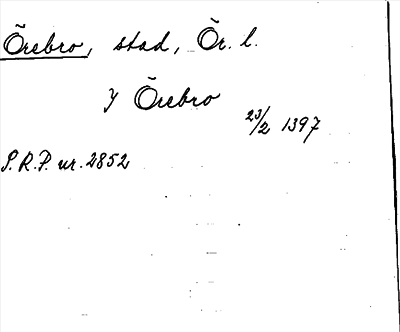 Örebro, stad, Ör. l.
J Örebro
23/2 1397
S.R.P. nr. 2852